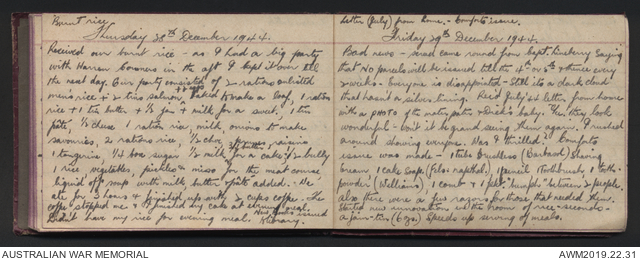 Burnt rice
Thursday 28th December 1944.
Received our burnt rice - as I had a big party
with Warren in the aft I kept it over till
the next day. Our party consisted of 2 rations enlisted
mens rice + 2 tins salmon + egg baked to make a loaf, 1 ration
rice + 1 tin butter + 1/2 jam + milk for a sweet, 1 tin
pate, 1/2 cheese 1 ration rice, milk, onions to make
savouries, 2 rations rice, 1/2 choc, butter, raisins
1 tangerine, 1/4 box sugar 1/2 milk for a cake & 2 bully
1 rice, vegetables, pickles & miso for the meat course
liquid off soup with milk butter + pate added. We
ate for 3 hours & finished up with 2 cups coffee. The
coffee stopped me & I finished my cake at evening meal.
Didn't have my rice for evening meal. New books issued
Library.
Letter (July) from home. - Comforts issue.
Friday 29th December 1944.
Bad news - read came round from Capt. saying
that no parcels will be issued till the 4th or 5th & thence every
2 weeks - Everyone is disappointed - Still its a dark cloud
that hasn't a silver lining. Rec'd July 44 letter from home
with a PHOTO of the mater, pater & Dick's baby. They look
wonderful - won't it be grand seeing them again. I rushed
around showing everyone. Was I thrilled? Comforts
issue was made - 1 tube Brushless (Barbasol) Shaving
cream, 1 cake Soap (Fels naptha), 1 pencil, Toothbrush, 1 tooth-
powder (Williams), 1 comb & 1 pkt. between 2 people.
also there were a few razors for those that needed them.
Started new innovation in the room of rice-seconds-
a pin-tin (6 oz). Speeds up serving of meals.
AUSTRALIAN WAR MEMORIAL
AWM2019.22.31